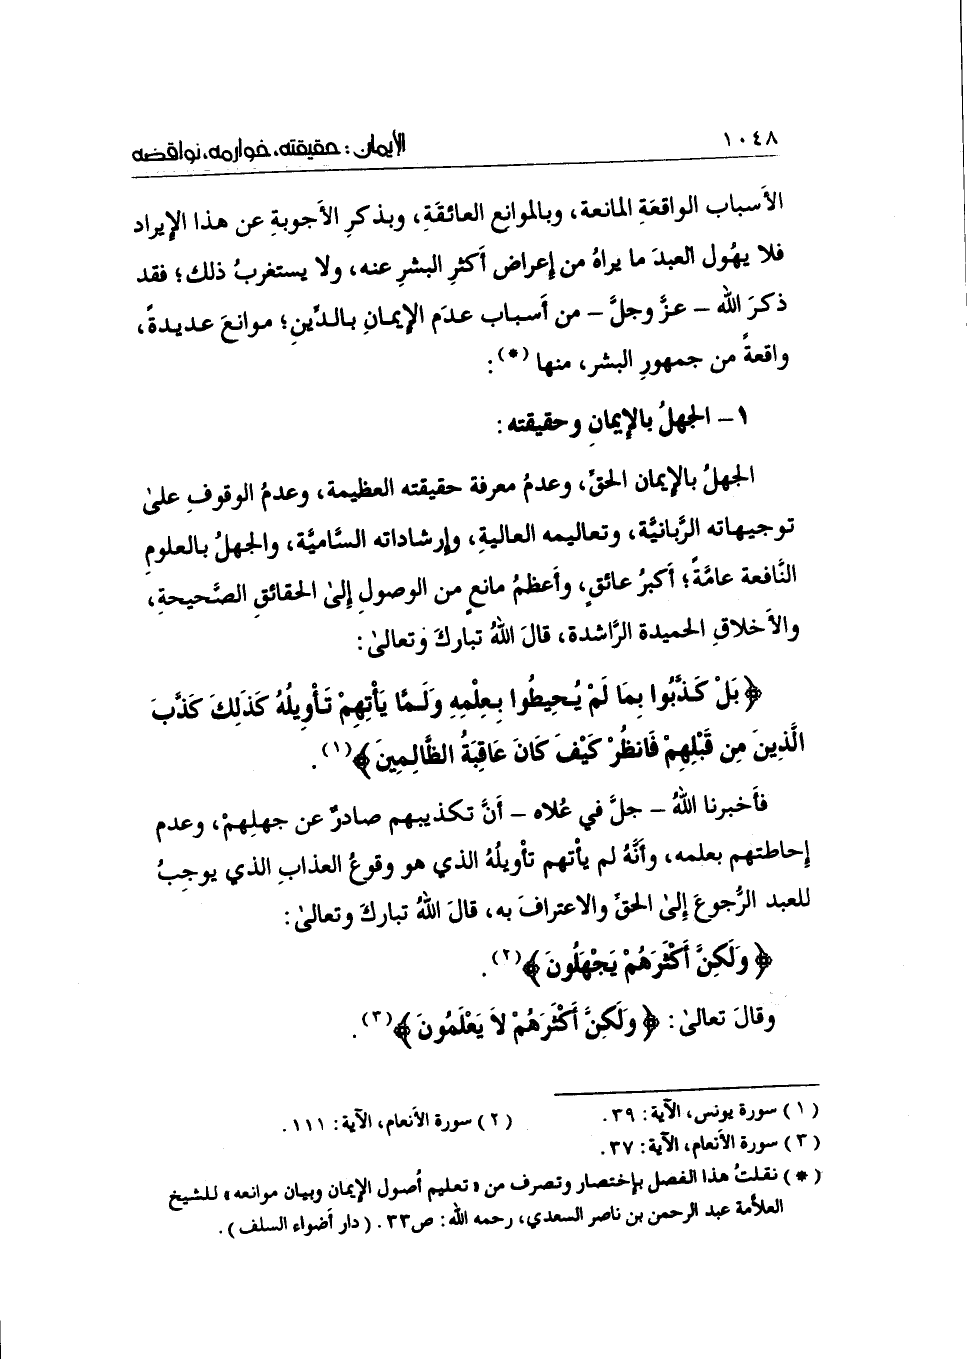 ١٠٤٨
الإيمان : حقيقته، خوارمه، نواقضه
الأَسباب الواقعَةِ المانعة، وبالموانع العائقَةِ، وبذكرِ الأَجوبةِ عن هذا الإيراد
فلا يهُول العبدَ ما يراهُ من إعراض أكثرِ البشرِ عنه، ولا يستغربُ ذلك؛ فقد
ذكرَ الله – عزَّ وجلَّ – من أَسباب عدَم الإيمانِ بالدِّينِ؛ موانعَ عديدةً،
واقعةً من جمهورِ البشر، منها (*):
١ – الجهلُ بالإيمانِ وحقيقته :
الجهلُ بالإيمان الحقِّ، وعدمُ معرفة حقيقته العظيمة، وعدمُ الوقوفِ علىٰ
توجيهاته الرَّبانيَّة، وتعاليمه العاليةِ، وإرشاداته السَّاميَّة، والجهلُ بالعلومِ
النَّافعة عامَّةً؛ أكبرُ عائقٍ، وأَعظمُ مانعٍ من الوصولِ إلىٰ الحقائقِ الصَّحيحةِ،
والأَخلاقِ الحميدة الرَّاشدة، قالَ اللهُ تباركَ وتعالىٰ :
﴿ بَلْ كَذَّبُوا بِمَا لَمْ يُحِيطُوا بِعِلْمِهِ وَلَمَّا يَأْتِهِمْ تَأْوِيلُهُ كَذَلِكَ كَذَّبَ
الَّذِينَ مِن قَبْلِهِمْ فَانظُرْ كَيْفَ كَانَ عَاقِبَةُ الظَّالِمِينَ ﴾(١).
فأَخبرنا اللهُ – جلَّ في عُلاه – أنَّ تكذيبهم صادرٌ عن جهلِهمْ، وعدم
إحاطتهم بعلمه، وأنَّهُ لم يأتهم تأويلُهُ الذي هو وقوعُ العذابِ الذي يوجبُ
للعبد الرُّجوعَ إلىٰ الحقِّ والاعترافَ به، قالَ اللهُ تباركَ وتعالىٰ :
﴿ وَلَكِنَّ أَكْثَرَهُمْ يَجْهَلُونَ ﴾(٢).
وقالَ تعالىٰ : ﴿ وَلَكِنَّ أَكْثَرَهُمْ لاَ يَعْلَمُونَ ﴾(٣).
(١) سورة يونس، الآية : ٣٩. (٢) سورة الأَنعام، الآية : ١١١.
(٣) سورة الأَنعام، الآية : ٣٧.
(*) نقلتُ هذا الفصل بإختصار وتصرف من «تعليم أصول الإيمان وبيان موانعه» للشيخ
العلاَّمة عبد الرحمن بن ناصر السعدي، رحمه الله : ص٣٣. (دار أضواء السلف).